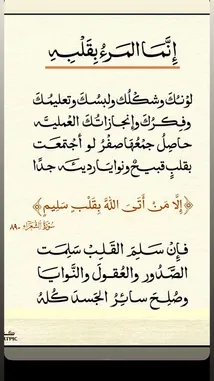 إِنَّمَا المَرءُ بِقَلْبِهِ
لوْنُكَ وشكْلُك ولبسُكَ وتعليمُكَ
وفِكرُكَ وإنجازاتُكَ العُمليّة
حاصِلُ جمْعُها صفْرٌ لو أجتمَعَت
بقلبٍ قبيحٌ ونوايا رديئه جدًا
﴿إِلَّا مَنْ أَتَى اللَّهَ بِقَلْبٍ سَلِيمٍ﴾
سُورَةُ الشُّعَرَاءِ ٨٩
فإنْ سَلِمَ القَلبْ سَلِمَت
الصّدُور والعُقولَ والنّوايا
وصَلِحَ سائِرُ الجَسدَ كلهُ